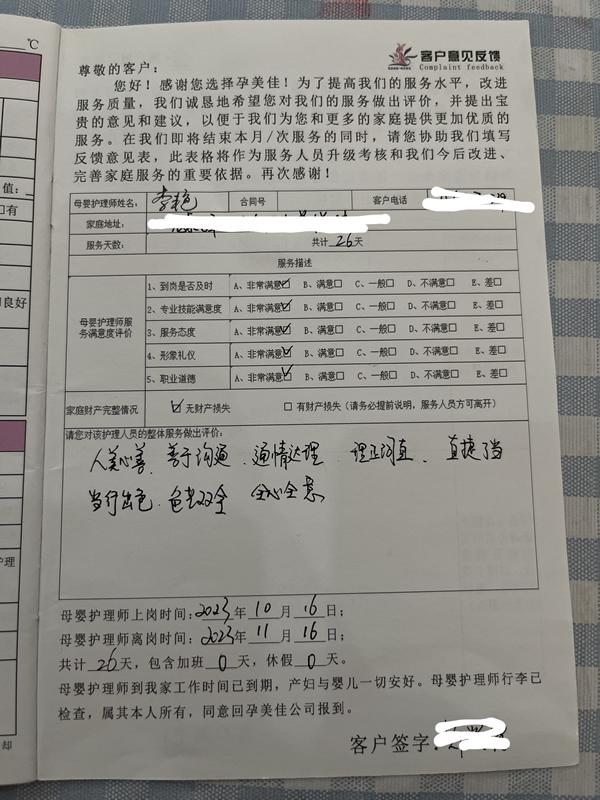 ℃
值:
口有
良好
护理
却
客户意见反馈
Complaint feedback
尊敬的客户:
您好!感谢您选择孕美佳!为了提高我们的服务水平,改进
服务质量,我们诚恳地希望您对我们的服务做出评价,并提出宝
贵的意见和建议,以便于我们为您和更多的家庭提供更加优质的
服务。在我们即将结束本月/次服务的同时,请您协助我们填写
反馈意见表,此表格将作为服务人员升级考核和我们今后改进、
完善家庭服务的重要依据。再次感谢!
母婴护理师姓名: 李艳 合同号 客户电话
家庭地址:
服务天数: 共计 26 天
服务描述
母婴护理师服
务满意度评价
1、到岗是否及时 A、非常满意☑ B、满意口 C、一般口 D、不满意口 E、差口
2、专业技能满意度 A、非常满意☑ B、满意口 C、一般口 D、不满意口 E、差口
3、服务态度 A、非常满意☑ B、满意口 C、一般口 D、不满意口 E、差口
4、形象礼仪 A、非常满意☑ B、满意口 C、一般口 D、不满意口 E、差口
5、职业道德 A、非常满意☑ B、满意口 C、一般口 D、不满意口 E、差口
家庭财产完整情况 ☑ 无财产损失 口 有财产损失(请务必提前说明,服务人员方可离开)
请您对该护理人员的整体服务做出评价:
人美心善、善于沟通、通情达理、理正词直、直捷了当
当行出色、色艺双全、全心全意
母婴护理师上岗时间:2023年 10 月 16 日;
母婴护理师离岗时间:2023年 11 月 16 日;
共计 26 天,包含加班 0 天,休假 0 天。
母婴护理师到我家工作时间已到期,产妇与婴儿一切安好。母婴护理师行李已
检查,属其本人所有,同意回孕美佳公司报到。
客户签字: